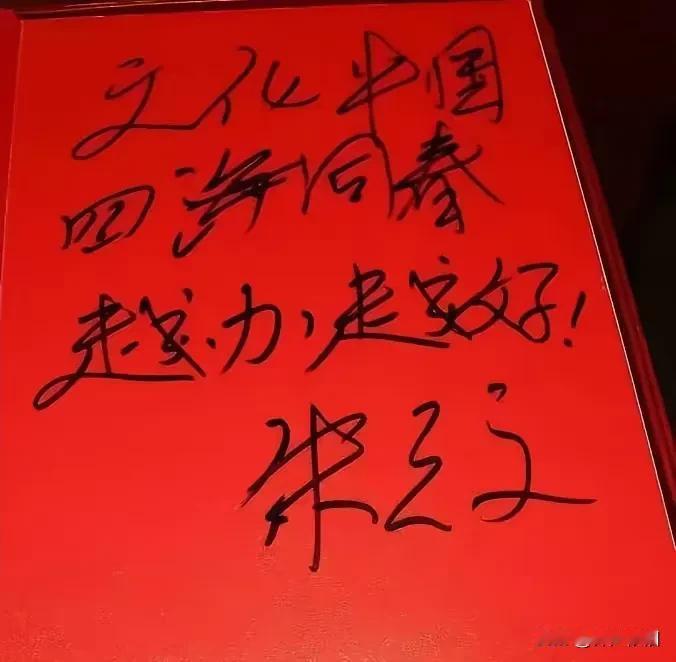 文化中国
四海同春
越办越好!
朱之文